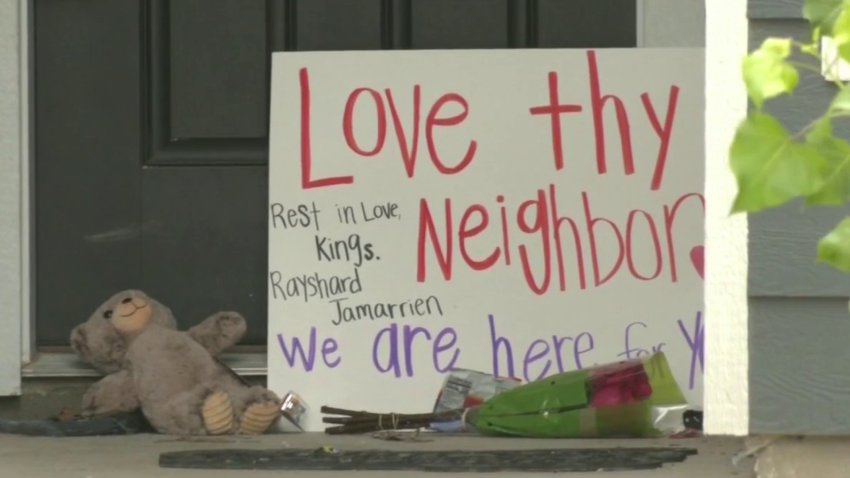 Love thy
Neighbor
Rest in Love,
Kings.
Rayshard
Jamarrien
We are here for